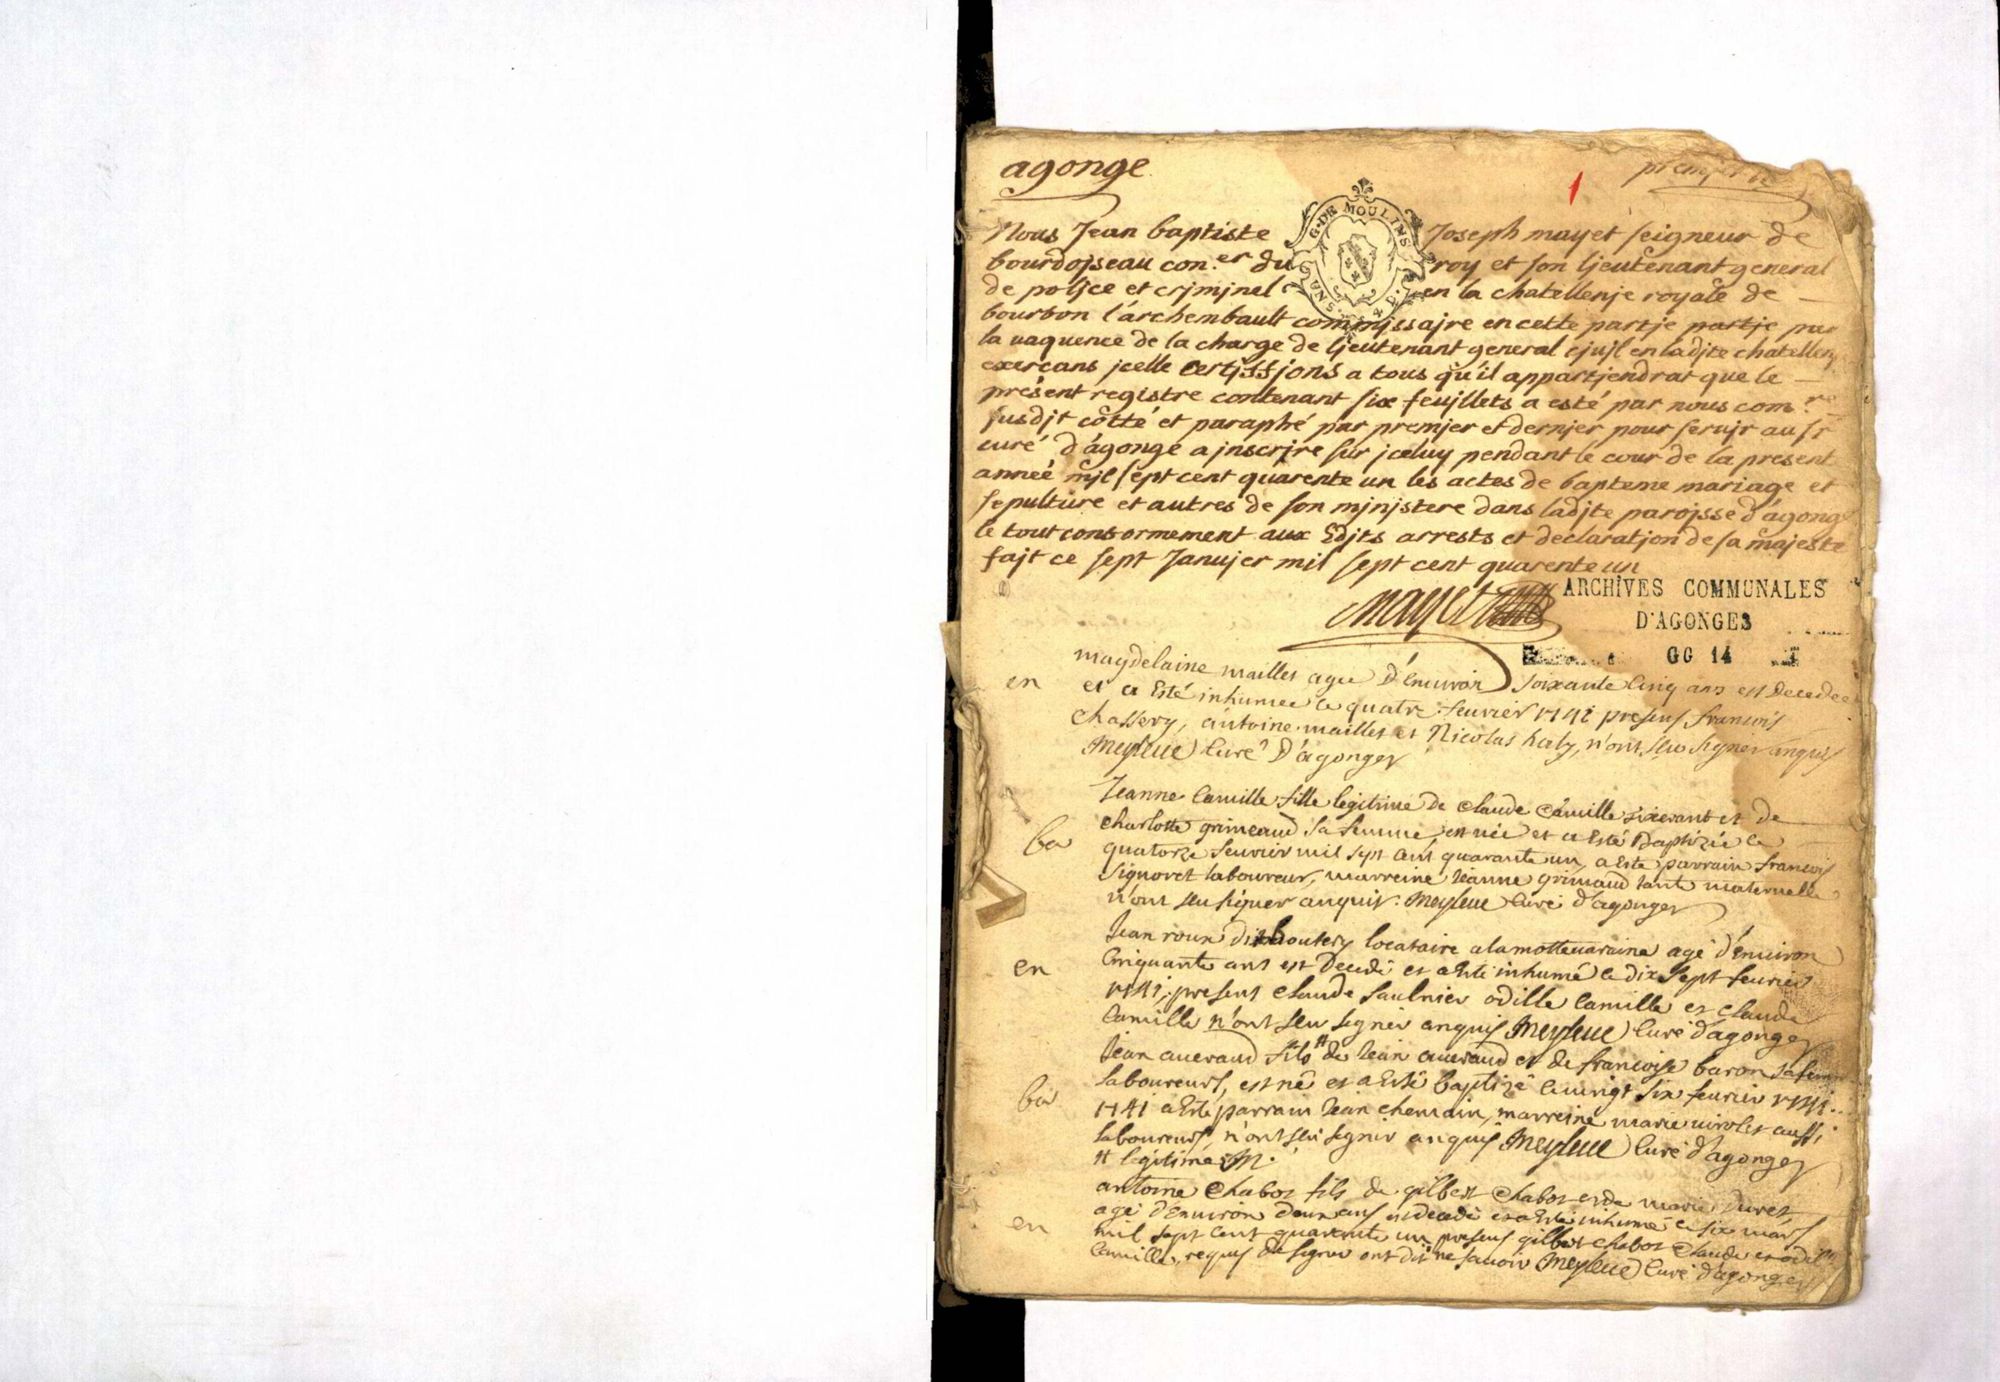 agonge
premier
1
G. DE MOULINS
Nous Jean baptiste Joseph mayet seigneur de
bourdoiseau con.er du roy et son lieutenant general
de police et criminel en la chatellenie royale de
bourbon l'archembault commissaire en cette partie partie par
la vaquence de la charge de lieutenant general civil en ladite chatellen
exercans icelle certiffions a tous qu'il appartiendrat que le
présent registre contenant six feuillets a esté par nous com.re
susdit côtté et paraphé par premier et dernier pour servir au sr
curé d'agonge a inscrire sur iceluy pendant le cour de la present
année mil sept cent quarente un les actes de bapteme mariage et
sepulture et autres de son ministere dans ladite paroisse d'agonge
le tout conformement aux Edits arrests et declaration de sa majesté
fait ce sept Janvier mil sept cent quarente un
mayet
ARCHIVES COMMUNALES
D'AGONGES
GG 14
en
magdelaine maillet agee d'environ soixante cinq ans est decedee
et a esté inhumee le quatre fevrier 1741 presens francois
chassery, antoine maillet et Nicolas n'ont seu signer enquis
curé d'agonges
ba
Jeanne camille fille legitime de claude camille et de
charlotte grimeaud sa femme est née et a esté Baptizée le
quatorze fevrier mil sept cent quarante un, a esté parrain francois
signoret laboureur, marreine jeanne grimaud tante maternelle
n'ont seu signer enquis. curé d'agonges
en
Jean roux dit locataire a lamottevaraine agé d'environ
cinquante ans est decedé et a esté inhumé le dix sept fevrier
1741, presens claude saulnier odille camille et claude
camille n'ont seu signer enquis curé d'agonges
ba
Jean averaud fils # de Jean averaud et de francoise baron sa femme
laboureurs, est né et a esté baptizé le vingt six fevrier 1741
1741 a esté parrain Jean chemain, marreine marie virolet aussi
laboureurs, n'ont seu signer enquis curé d'agonges
# legitime
en
antoine chabot fils de gilbert chabot et de marie duret
agé d'environ deux ans est decedé et a esté inhumé le six mars
mil sept cent quarante un presens gilbert chabot claude et odille
camille, requis de signer ont dit ne savoir curé d'agonges